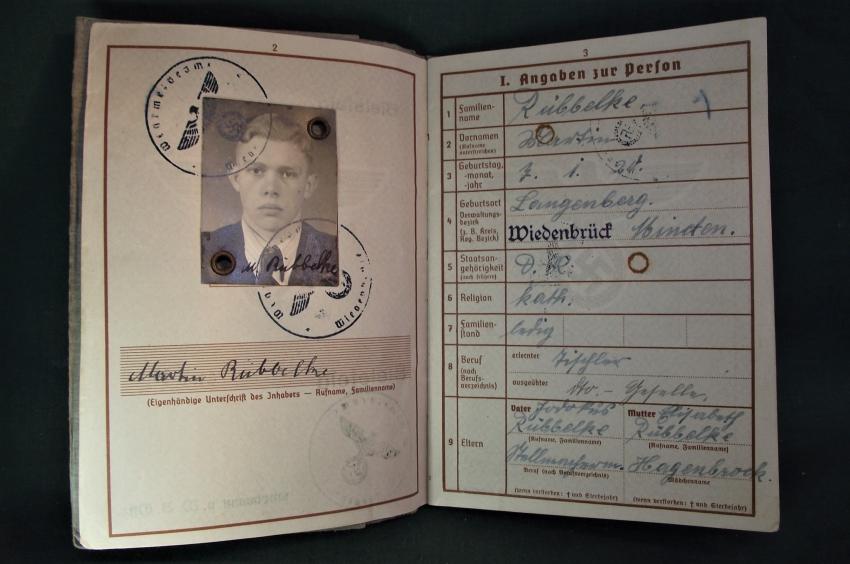 2
Wehrmeldeamt
M. Rübbelke
Martin Rübbelke
(Eigenhändige Unterschrift des Inhabers — Rufname, Familienname)
3
I. Angaben zur Person
1 Familien-
name
Rübbelke
2 Vornamen
(Rufname
unterstreichen)
Martin
3 Geburtstag,
-monat,
-jahr
7. 1. 24.
4 Geburtsort
Verwaltungs-
bezirk
(z. B. Kreis,
Reg. Bezirk)
Langenberg.
Wiedenbrück Minden.
5 Staatsan-
gehörigkeit
(auch frühere)
D. R.
6 Religion
kath.
7 Familien-
stand
ledig
8 Beruf
(nach
Berufs-
verzeichnis)
erlernter Tischler
ausgeübter dto. - Geselle.
9 Eltern
Vater Jodokus
Rübbelke
(Rufname, Familienname)
Stellmacherm.
Beruf (nach Berufsverzeichnis)
(wenn verstorben: † und Sterbejahr)
Mutter Elisabeth
Rübbelke
(Rufname, Familienname)
Hagenbrock.
Mädchenname
(wenn verstorben: † und Sterbejahr)